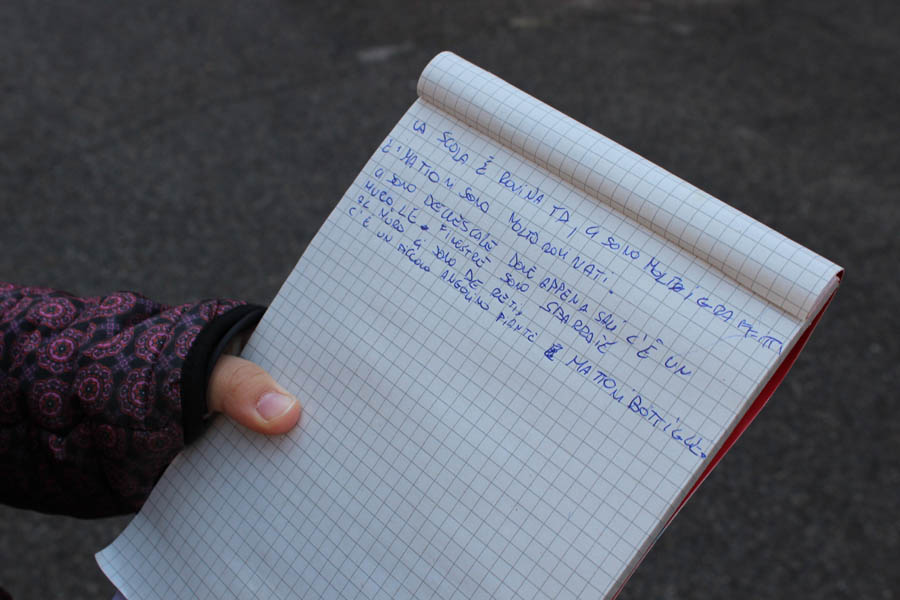 LA SCOLA È ROVINATA, CI SONO MOLTI GRAFFITI
E I MATTONI SONO MOLTO ROVINATI.
CI SONO DELLE SCALE DOVE APPENA SALI C'È UN
MURO. LE FINESTRE SONO SBARRATE
AL MURO CI SONO DE RETI,
C'È UN PICCOLO ANGOLINO PIANTE MATTONI BOTTIGLIE.